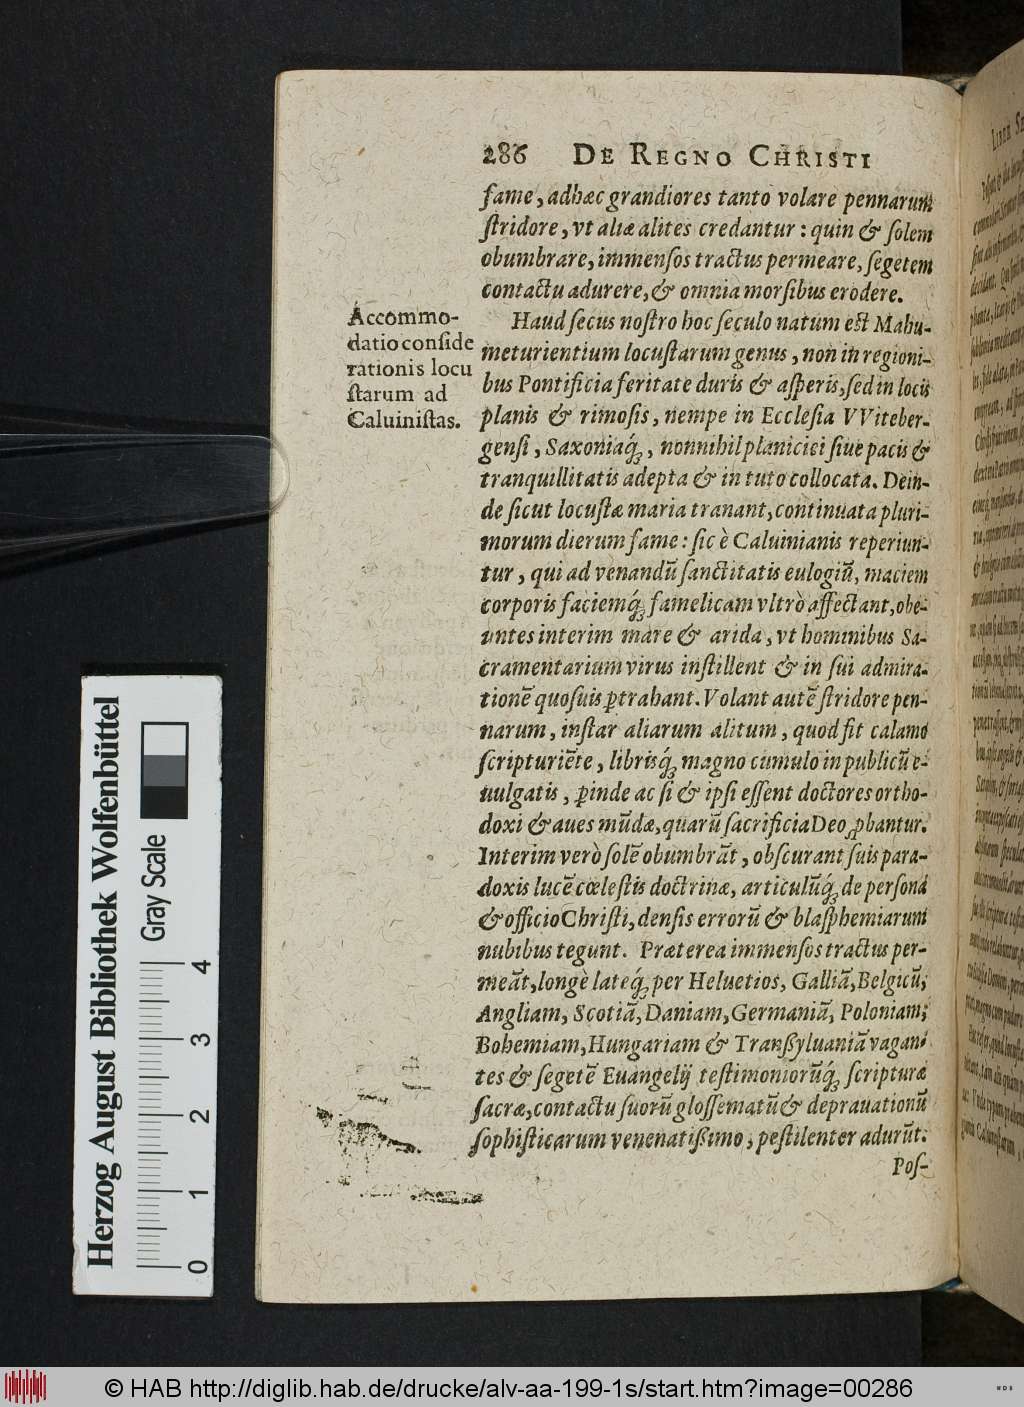 286 DE REGNO CHRISTI
fame, adhæc grandiores tanto volare pennarum
ſtridore, vt aliæ alites credantur: quin & ſolem
obumbrare, immenſos tractus permeare, ſegetem
contactu adurere, & omnia morſibus erodere.
Haud ſecus noſtro hoc ſeculo natum eſt Mahu-
meturientium locuſtarum genus, non in regioni-
bus Pontificia feritate duris & aſperis, ſed in locis
planis & rimoſis, nempe in Eccleſia VViteber-
genſi, Saxoniaq́;, nonnihil planiciei ſiue pacis &
tranquillitatis adepta & in tuto collocata. Dein-
de ſicut locuſtæ maria tranant, continuata pluri-
morum dierum fame: ſic è Caluinianis reperiun-
tur, qui ad venandũ ſanctitatis eulogiũ, maciem
corporis faciemq́; famelicam vltrò affectant, obe-
untes interim mare & arida, vt hominibus Sa-
cramentarium virus inſtillent & in ſui admira-
tionẽ quoſuis ꝑtrahant. Volant autẽ ſtridore pen-
narum, inſtar aliarum alitum, quod fit calamo
ſcripturiẽte, librisq́; magno cumulo in publicũ e-
uulgatis, ꝑinde ac ſi & ipſi eſſent doctores ortho-
doxi & aues mũdæ, quarũ ſacrificia Deo ꝓbantur.
Interim verò ſolẽ obumbrãt, obſcurant ſuis para-
doxis lucẽ cœleſtis doctrinæ, articulũq́; de perſona
& officio Chriſti, denſis errorũ & blaſphemiarum
nubibus tegunt. Præterea immenſos tractus per-
meãt, longè lateq́; per Heluetios, Galliã, Belgicũ,
Angliam, Scotiã, Daniam, Germaniã, Poloniam,
Bohemiam, Hungariam & Tranßyluaniã vagan-
tes & ſegetẽ Euangelij teſtimoniorũq́; ſcripturæ
ſacræ, contactu ſuorũ gloſſematũ & deprauationũ
ſophiſticarum venenatißimo, peſtilenter adurũt.
Poſ-
Accommo-
datio conſide
rationis locu
ſtarum ad
Caluiniſtas.
Herzog August Bibliothek Wolfenbüttel
Gray Scale
0 1 2 3 4
© HAB http://diglib.hab.de/drucke/alv-aa-199-1s/start.htm?image=00286